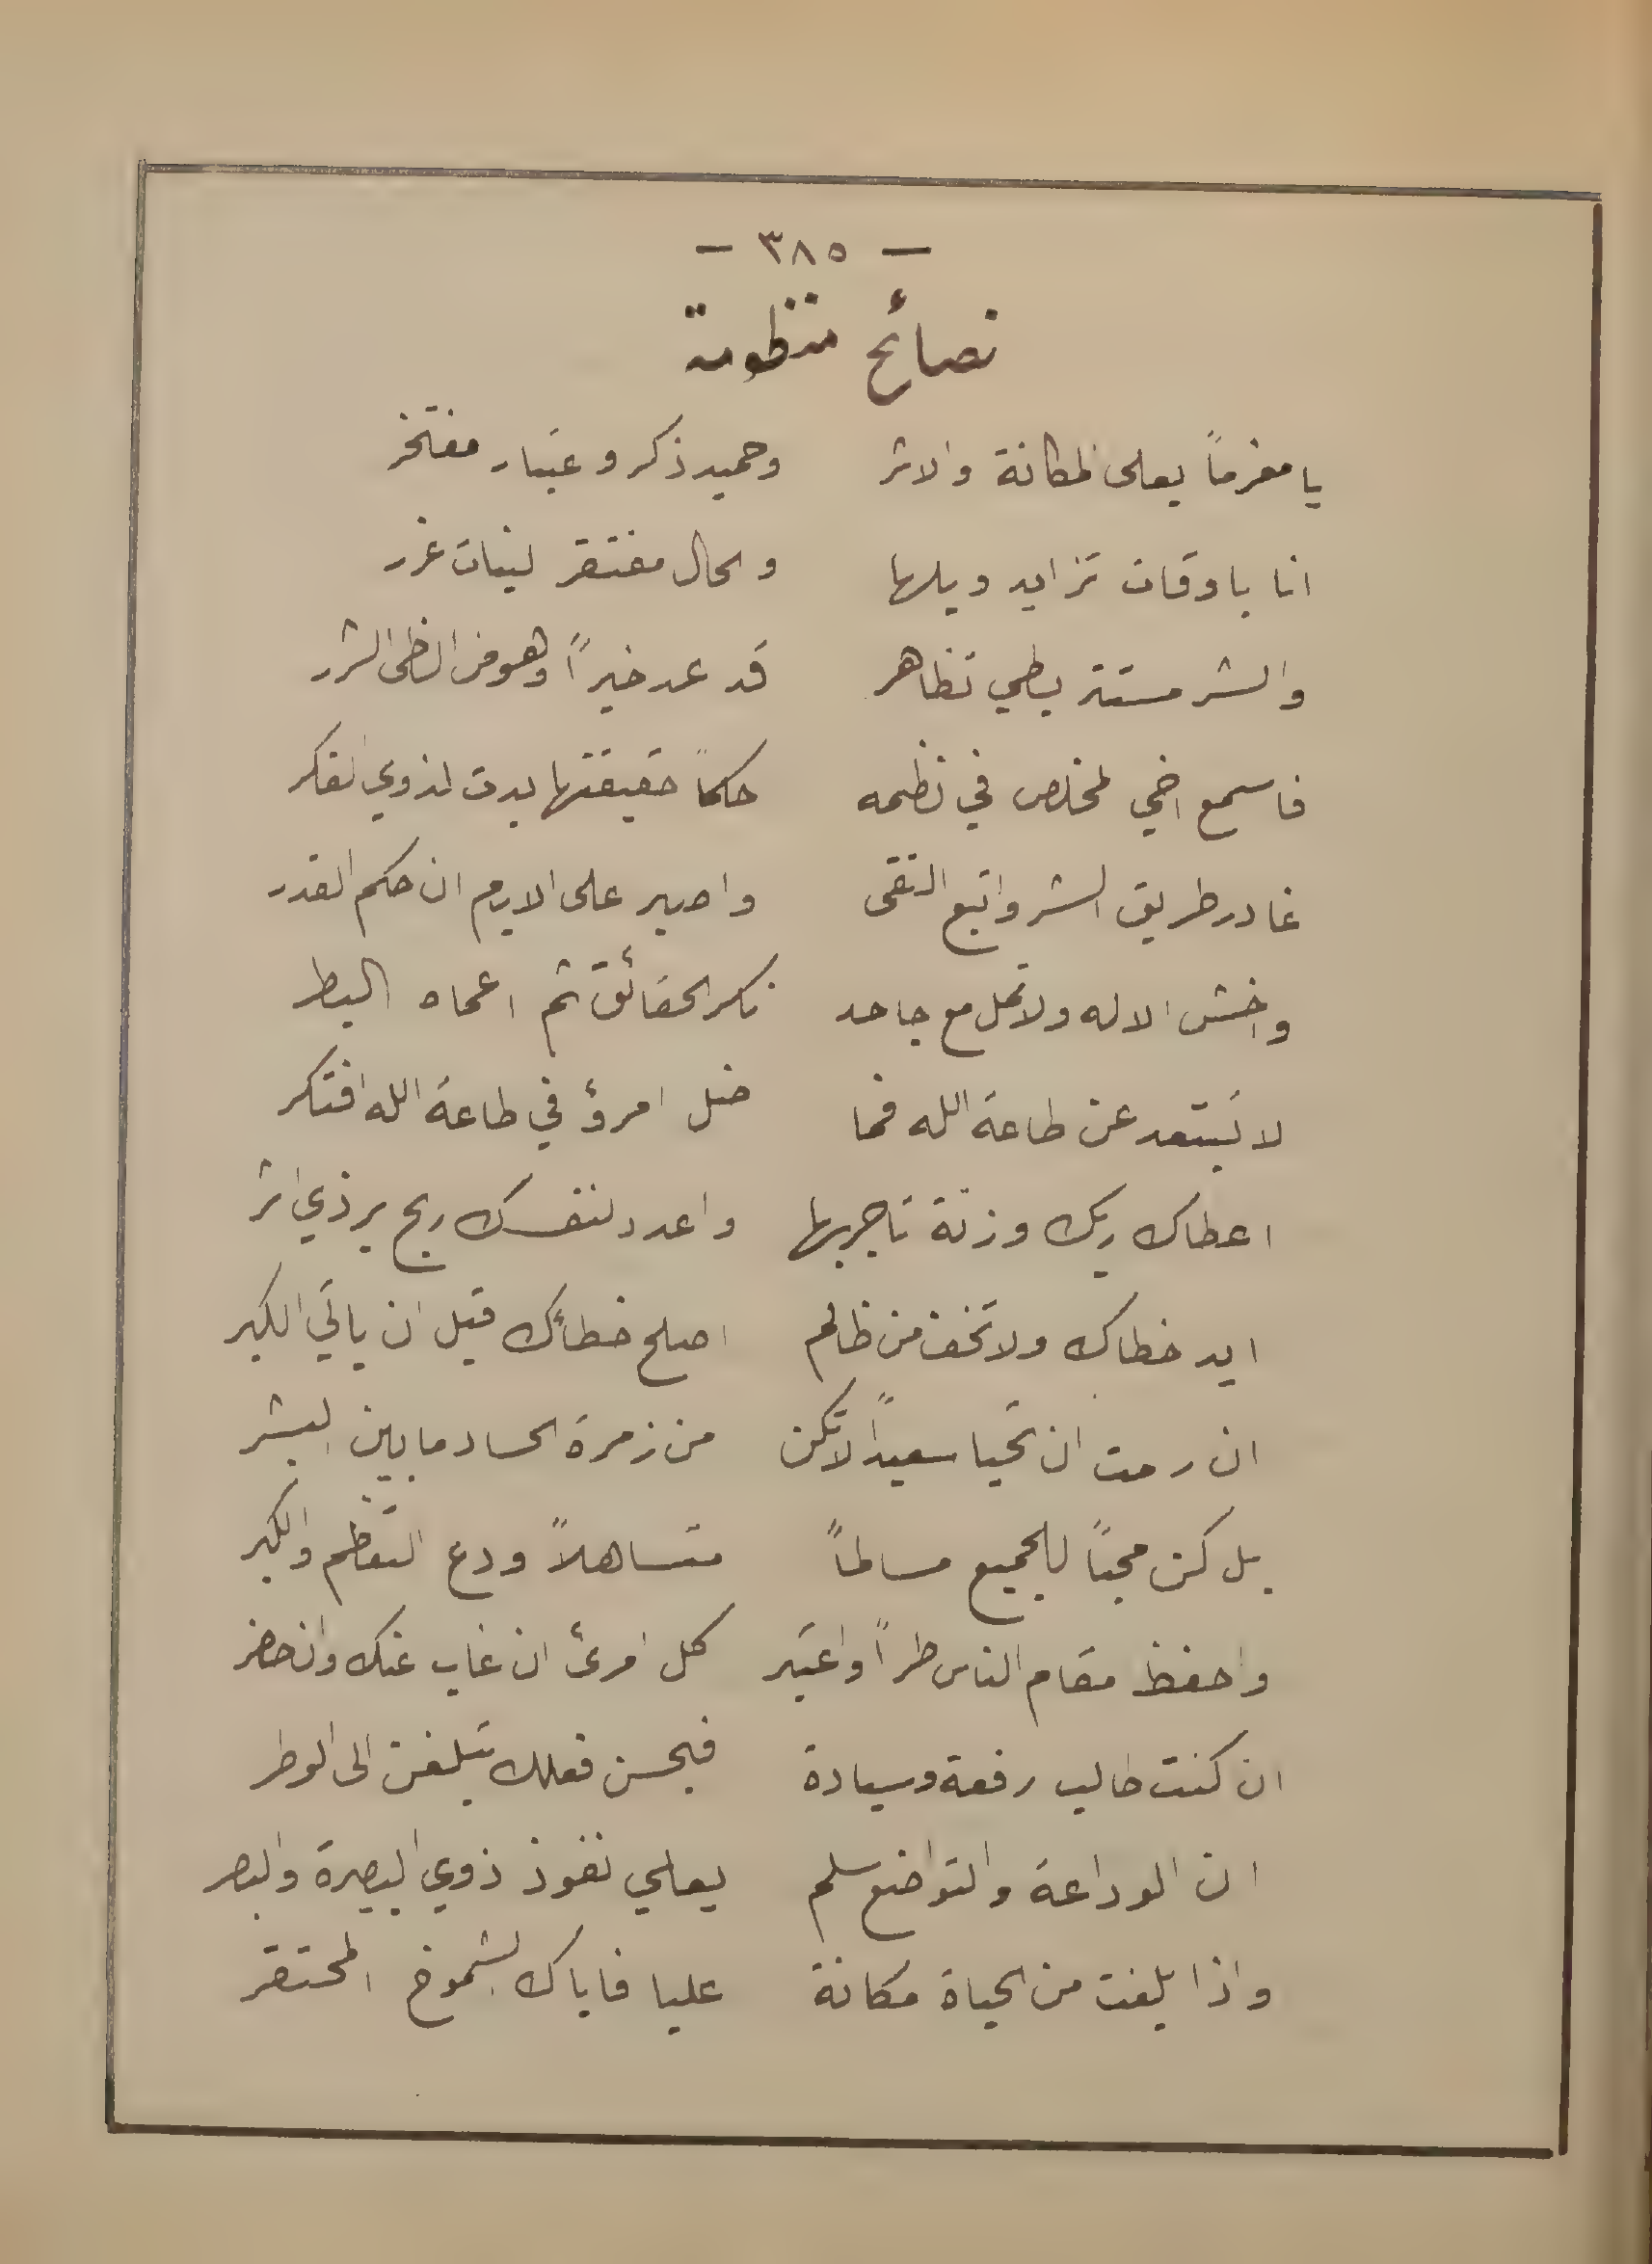 — ٣٨٥ —
نصائح منظومة
يا مغرماً بعلى المكانة والاثر وحميد ذكر و عتبار مفتخر
انا باوقات تزايد ويلها والحال مفتقر لينات غرر
والشر مستتر بطي تظاهر قد عد خيراً وهو من الظى الشرر
فاسمع اخي لمخلص في نظمه حكماً حقيقتها بدت لذوي الفكر
غادر طريق الشر واتبع التقى واصبر على الايام ان حكم القدر
واخش الاله ولا تمل مع جاحد نكر الحقائق ثم اعماه البطر
لا تبتعد عن طاعة الله فما ضل امرؤ في طاعة الله افتكر
اعطاك ربك وزنة تاجر بها واعدد لنفسك ربح بر ذي اثر
ايد خطاك ولا تخف من ظالم اصلح خطائك قبل ان يأتي الكبر
ان رمت ان تحيا سعيداً لا تكن من زمرة الحساد ما بين البشر
بل كن محباً للجميع مسالماً متساهلاً ودع التعظم والكبر
واحفظ مقام الناس طراً واعتبر كل امرئ ان غاب عنك وان حضر
ان كنت طالب رفعة وسيادة فبحسن فعلك تبلغن الى الوطر
ان الوداعة والتواضع سلم يعلي نفوذ ذوي البصيرة والبصر
واذا بلغت من الحياة مكانة عليا فاياك الشموخ المحتقر